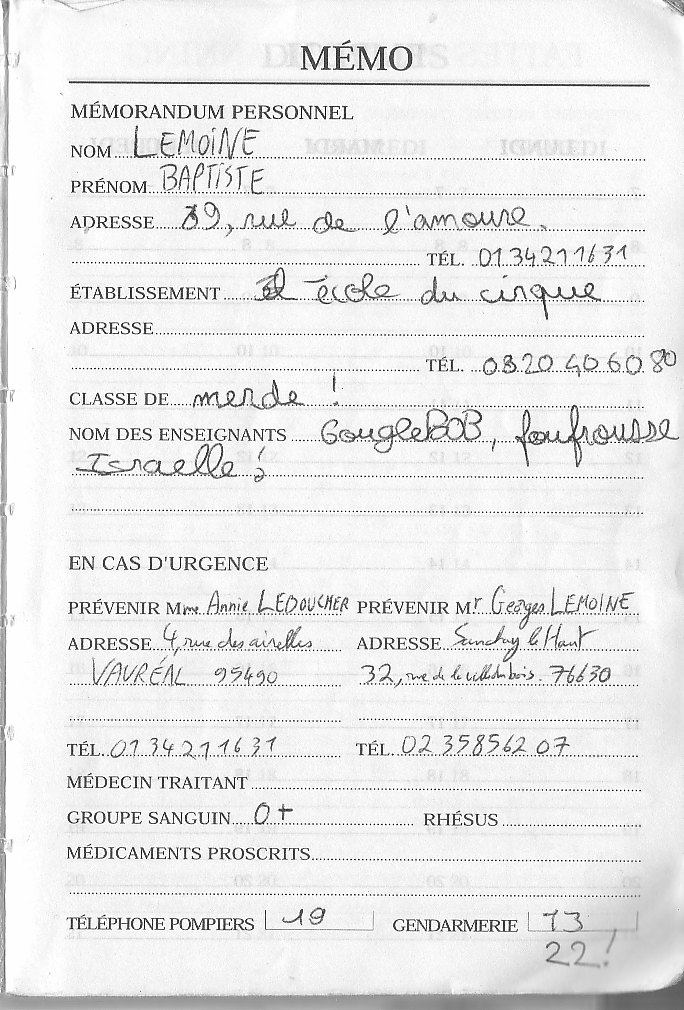 MÉMO
MÉMORANDUM PERSONNEL
NOM LEMOINE
PRÉNOM BAPTISTE
ADRESSE 39, rue de l'amoure.
TÉL. 01 34 21 16 31
ÉTABLISSEMENT école du cirque
ADRESSE
TÉL. 03 20 40 60 80
CLASSE DE merde !
NOM DES ENSEIGNANTS GougleBOB, foufrousse
Israelle
EN CAS D'URGENCE
PRÉVENIR Mme Annie LEBOUCHER PRÉVENIR Mr Georges LEMOINE
ADRESSE 4, rue des airelles ADRESSE le Haut
VAURÉAL 95490 32, rue de 76630
TÉL. 01 34 21 16 31 TÉL. 02 35 85 62 07
MÉDECIN TRAITANT
GROUPE SANGUIN O+ RHÉSUS
MÉDICAMENTS PROSCRITS
TÉLÉPHONE POMPIERS 19 GENDARMERIE 13
22!